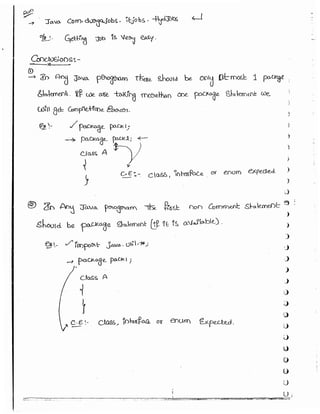 → Java com.durgajobs.itjobs.
Ex:- Getting Job is very easy.
Conclusions:-
①
→ In Any Java program there should be only Atmost 1 package
statement. If we are taking morethan one package statement we
will get CompileTime Error.
Ex:- ✓ package pack1;
→ package pack2; ←
class A
{
}
C.E:- class, interface or enum expected.
② In Any Java program the first non comment statement
should be package statement (if it is available).
Ex:- ✓ import java.util.*;
→ package pack1;
class A
{
}
C.E:- class, interface or enum expected.